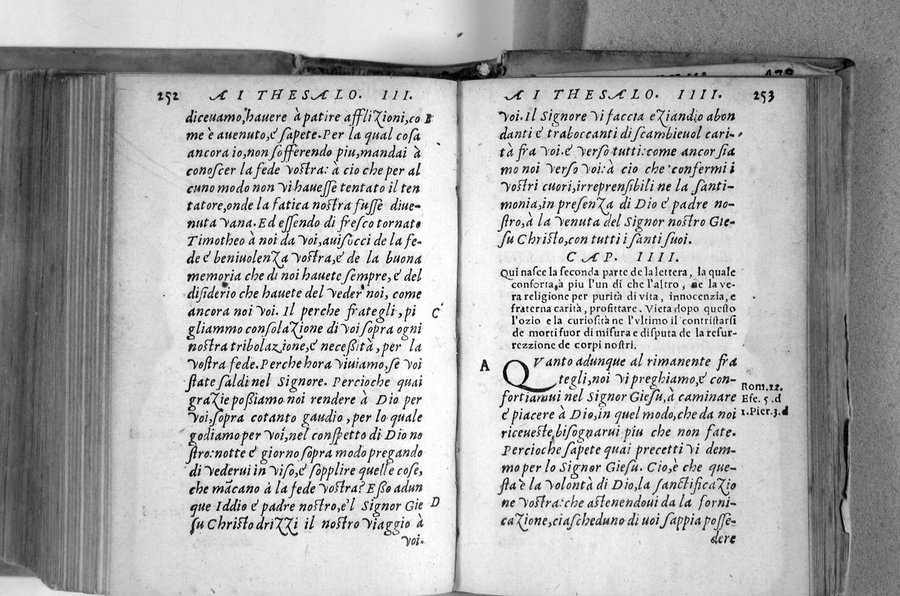 252 A I THESALO. III.
diceuamo, hauere à patire afflizioni, co B
me è auenuto, e sapete. Per la qual cosa
ancora io, non sofferendo piu, mandai à
conoscer la fede vostra: à cio che per al
cuno modo non vi hauesse tentato il ten
tatore, onde la fatica nostra fusse diue-
nuta vana. Ed essendo di fresco tornato
Timotheo à noi da voi, auisocci de la fe-
de e beniuolenza vostra, e de la buona
memoria che di noi hauete sempre, e del
disiderio che hauete del veder noi, come
ancora noi voi. Il perche frategli, pi C
gliammo consolazione di voi sopra ogni
nostra tribolazione, e necessità, per la
vostra fede. Perche hora viuiamo, se voi
state saldi nel Signore. Percioche quai
grazie possiamo noi rendere à Dio per
voi, sopra cotanto gaudio, per lo quale
godiamo per voi, nel conspetto di Dio no
stro: notte e giorno sopra modo pregando
di vederui in viso, e sopplire quelle cose,
che mãcano à la fede vostra? Esso adun
que Iddio e padre nostro, e'l Signor Gie D
su Christo drizzi il nostro viaggio à
voi.
A I THESALO. IIII. 253
voi. Il Signore vi faccia eziandio abon
danti e traboccanti di scambieuol cari-
tà fra voi e verso tutti: come ancor sia
mo noi verso voi: à cio che confermi i
vostri cuori, irreprensibili ne la santi-
monia, in presenza di Dio e padre no-
stro, à la venuta del Signor nostro Gie-
su Christo, con tutti i santi suoi.
CAP. IIII.
Qui nasce la seconda parte de la lettera, la quale
conforta, à piu l'un di che l'altro, ne la ve-
ra religione per purità di vita, innocenzia, e
fraterna carità, profittare. Vieta dopo questo
l'ozio e la curiosità ne l'vltimo il contristarsi
de morti fuor di misura e disputa de la resur-
rezzione de corpi nostri.
A QVanto adunque al rimanente fra
tegli, noi vi preghiamo, e con-
fortiamui nel Signor Giesu, à caminare
e piacere à Dio, in quel modo, che da noi
riceueste, bisognarui piu che non fate.
Percioche sapete quai precetti vi dem-
mo per lo Signor Giesu. Cio, è che que-
sta è la volontà di Dio, la sanctificazio
ne vostra: che astenendoui da la forni-
cazione, ciascheduno di uoi sappia posse-
dere
Rom. 12.
Efe. 5. d
1. Pier. 3. d